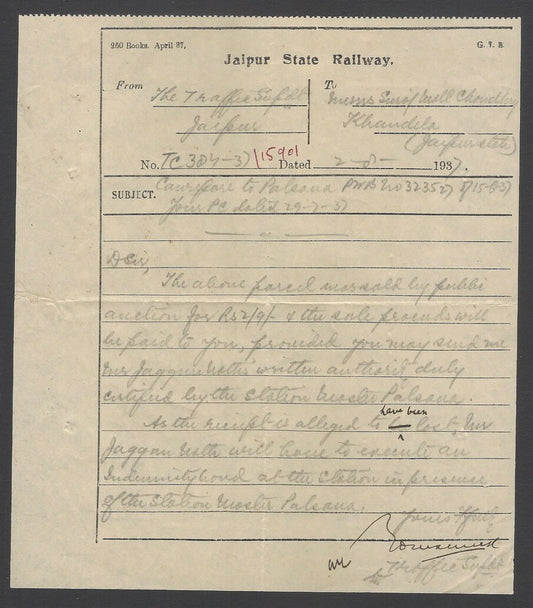 250 Books. April 37. G. T. B.
Jaipur State Railway.
From The Traffic Supdt
Jaipur
To
Messrs Surajmall Chowdhry
Khandela
(Jaipur state)
No. TC 384-37/15901 Dated 2-8- 1937.
SUBJECT. Cawnpore to Palsana PWB No 323527 of 15-6-37
Your PC dated 29-7-37
D Sir,
The above parcel was sold by public
auction for Rs 2/9/- & the sale proceeds will
be paid to you, provided you may send me
Mr Jaggan Nath's written authority duly
certified by the Station Master Palsana.
As the receipt is alleged to have been lost, Mr
Jaggan Nath will have to execute an
Indemnity bond at the Station in presence
of the Station Master Palsana.
Yours ffully
Traffic Supdt